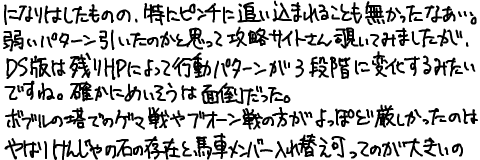 になりはしたものの、特にピンチに追い込まれることも無かったなあい。
弱いパターン引いたのかと思って攻略サイトさん覗いてみましたが、
DS版は残りHPによって行動パターンが3段階に変化するみたい
ですね。確かにめいそうは面倒だった。
ボブルの塔でのゲマ戦やブオーン戦の方がよっぽど厳しかったのは
やはりけんじゃの石の存在と馬車メンバー入れ替え可ってのが大きいの